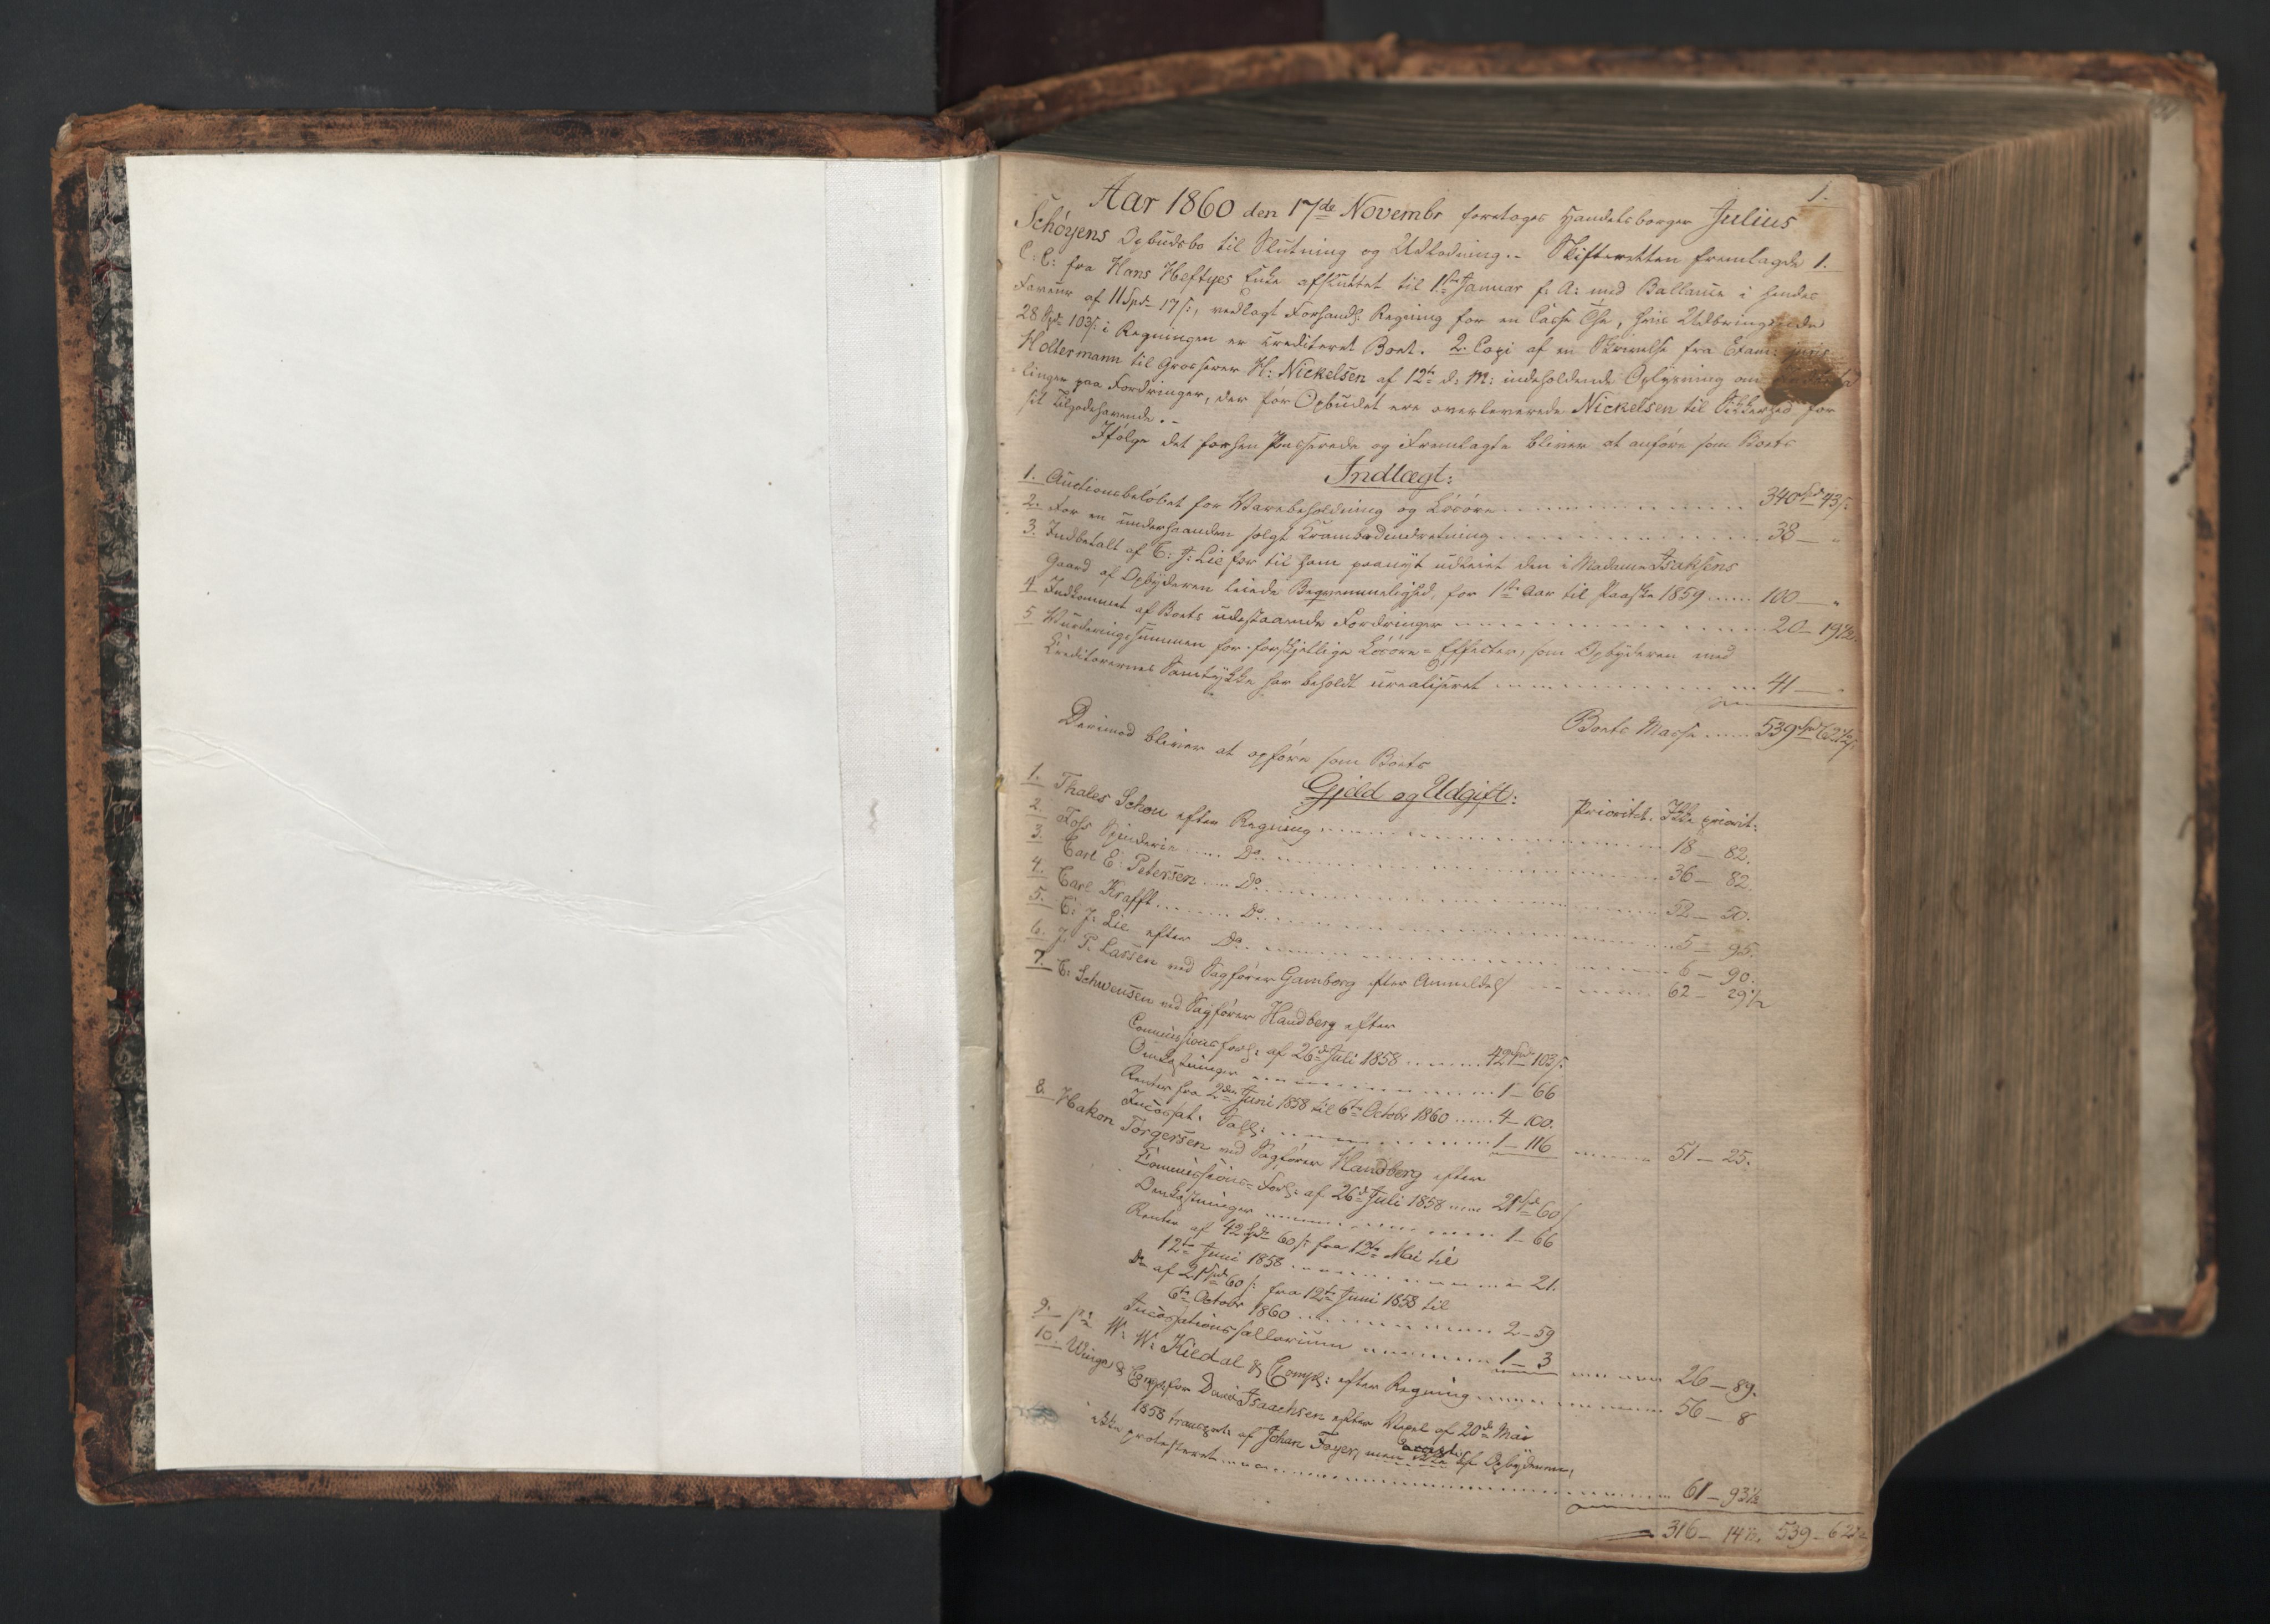 1.
Aar 1860 den 17de Novembr foretoges Handelsborger Julius
Schöyens Opbudsbo til Slutning og Udlodning.- Skifteretten fremlagde 1.
C: C: fra Hans Heftyes Enke afsluttet til 1ste Januar f: A: med Ballance i hendes
Faveur af 11 Spd 17 s:, vedlagt Forhandl: Regning for en Casse The, hvis Udbringende
28 Spd 103 s: i Regningen er krediteret Boet. 2. Copi af en Skrivelse fra Exam: juris
Holtermann til Grosserer H: Nickelsen af 12te d: M: indeholdende Oplysning om
lingen paa Fordringer, der før Opbudet ere overleverede Nickelsen til Sikkerhed for
sit Tilgodehavende.-
Ifølge det forhen Passerede og Fremlagte bliver at anføre som Boets
Indtægt:
1. Auctionsbeløbet for Varebeholdning og Løsøre 340 Spd 43 s:
2. For en underhaanden solgt Krambodindretning 38 — "
3. Indbetalt af E: J: Lie for til ham paanyt udleiet den i Madame Isaksens
Gaard af Opbyderen leiede Beqvemmelighed, for 1te Aar til Paaske 1859 100 — "
4 Indkommet af Boets udestaaende Fordringer 20 — 19 1/2.
5 Vurderingssummen for forskjellige Løsøre-Effecter, som Opbyderen med
Creditorernes Samtykke har beholdt urealiseret 41 — "
Boets Masse 539 Spd 62 1/2 s:
Derimod bliver at opføre som Boets
Gjeld og Udgift:
Prioritet. Ikke priorit:
1. Thales Schou efter Regning 18 — 82.
2. Foss Spinderie Do 36 — 82.
3. Carl E: Petersen Do 52 — 50.
4. Carl Krafft Do 5 — 95.
5. E: J: Lie efter Do 6 — 90.
6. J. P. Lassen ved Sagfører Gamborg efter Anmeldels 62 — 29 1/2
7. C: Schwensen ved Sagfører Handberg efter
Commissionsforl: af 26de Juli 1858 42 Spd 103 s:
Omkostninger 1 — 66
Renter fra 2den Juni 1858 til 6te Octobr 1860 4 — 100.
Incassat. Sall: 1 — 116 51 — 25.
8. Hakon Torgersen ved Sagfører Handberg efter
Commissions-Forl: af 26de Juli 1858 21 Spd 60 s
Omkostninger 1 — 66
Renter af 42 Spd 60 s: fra 12te Mai til
12te Juni 1858 21.
Do af 21 Spd 60 s: fra 12te Juni 1858 til
6te Octobr 1860 2 — 59
Incassationssallarium 1 — 3 26 — 89.
9. W: W: Kildal & Comp: efter Regning 56 — 8
10. Winge & Comp: for David Isaachsen efter Vexel af 20de Mai
1858 transport: af Johan Fayer, men ikke accept: af Opbyderen,
ikke protesteret 61 — 93 1/2
316 — 14 1/2. 539 — 62 1/2